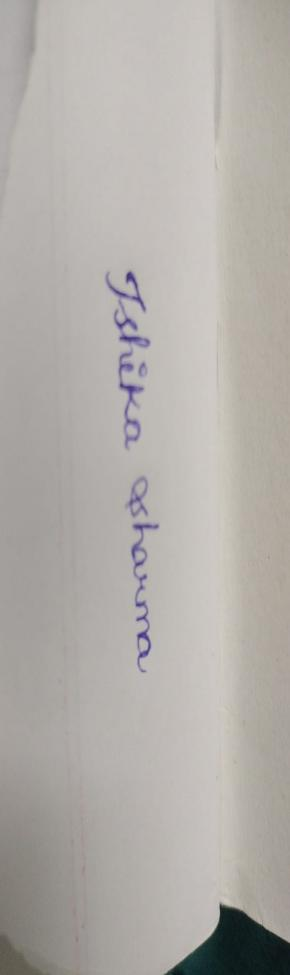 Ishika Sharma